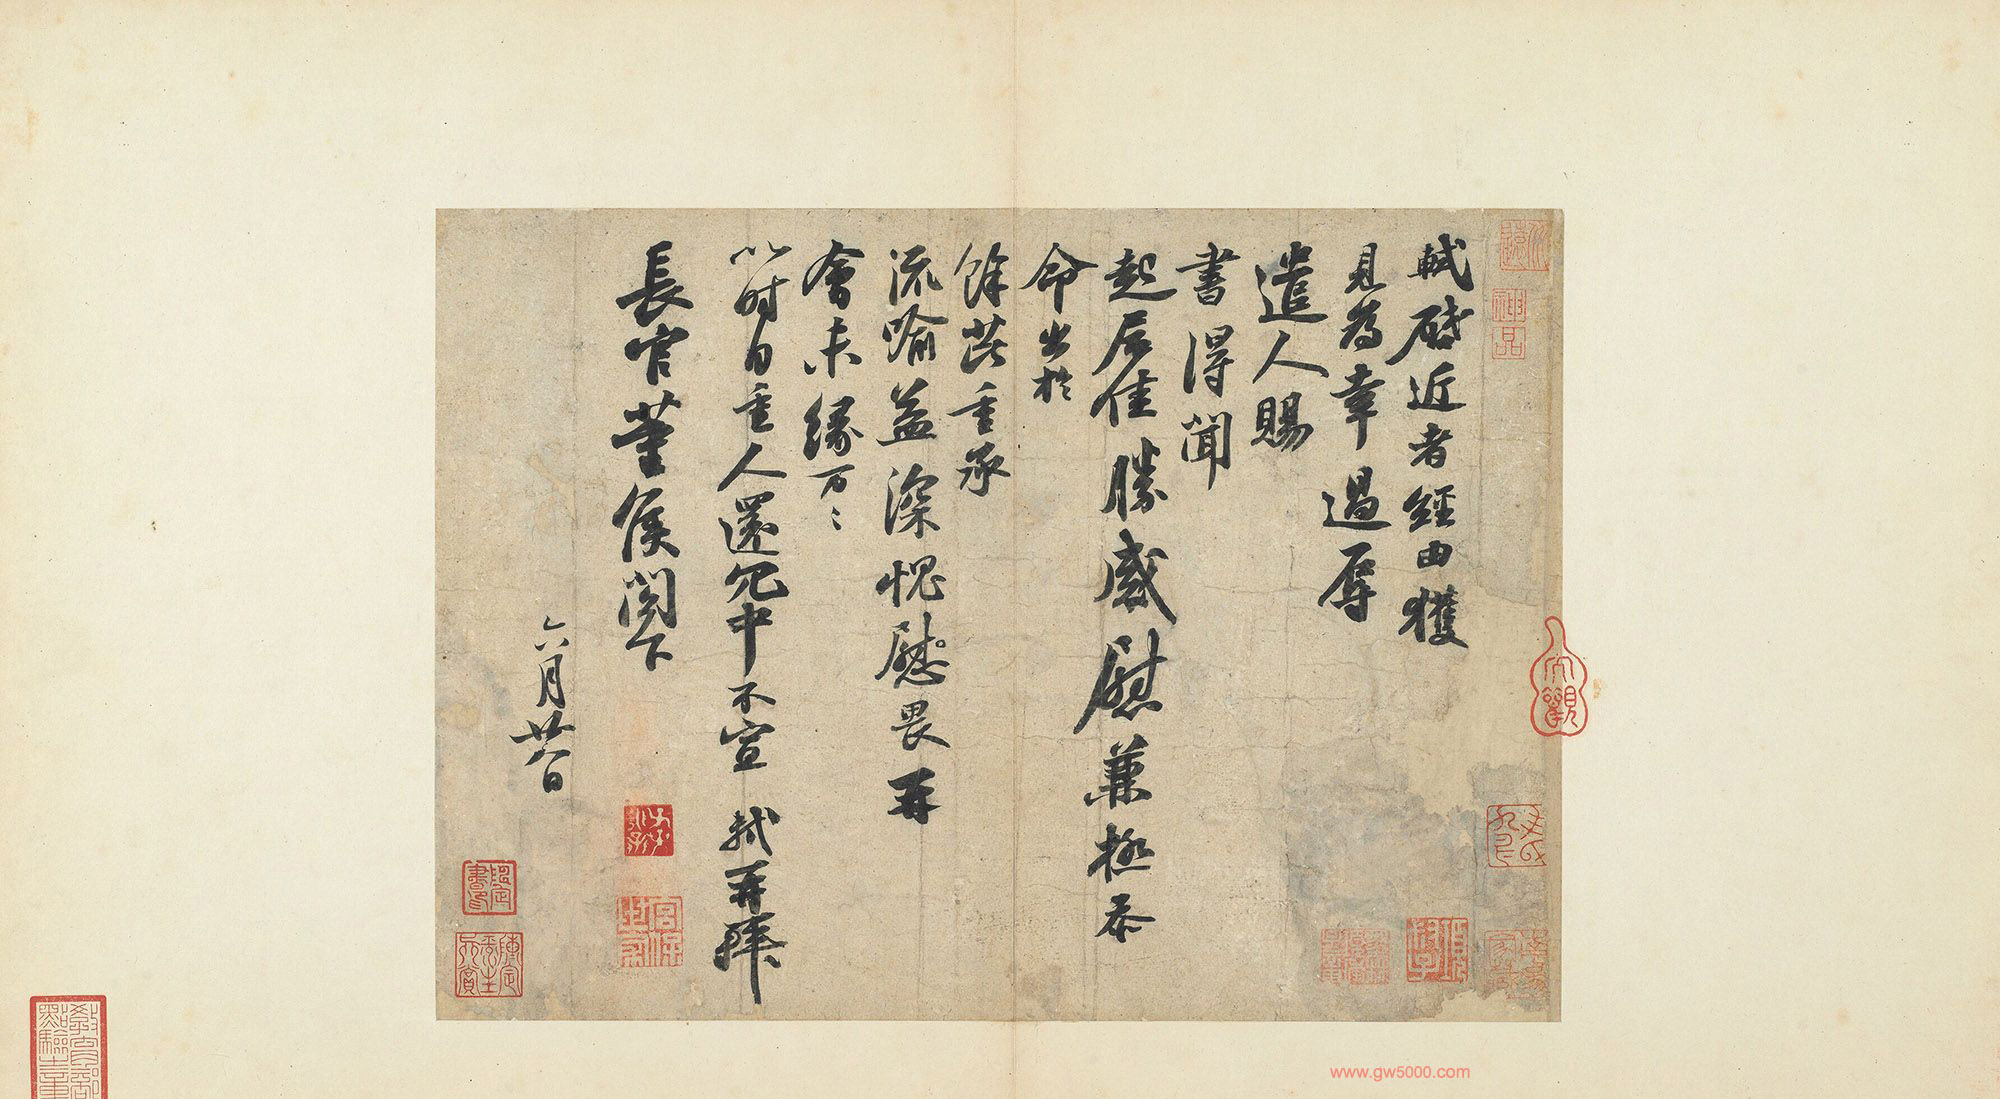 軾啓近者經由獲
見為幸過辱
遣人賜
書得聞
起居佳勝感慰兼極忝
命出於
餘芘重承
流喻益深愧慰畏再
會未緣万〻
以時自重人還冗中不宣 軾再拜
長官董侯閤下
六月廿八日
神品
大觀
www.gw5000.com